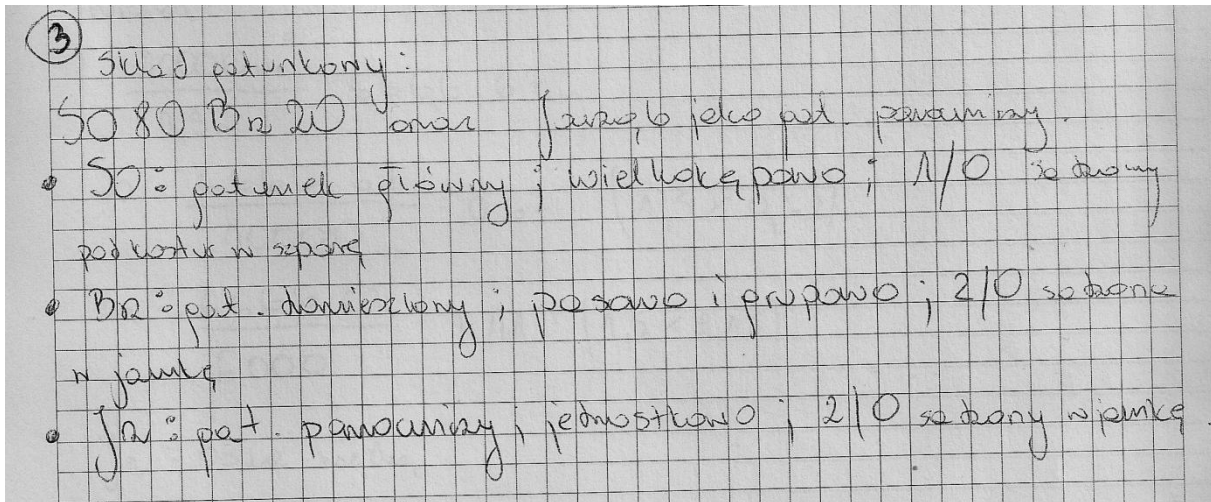 3
Skład gatunkowy:
So 80 Brz 20 oraz Jarząb jako gat. pomocniczy.
• SO: gatunek główny; wielkokępowo; 1/0 sadzony
pod kostur w szparę
• Brz: gat. domieszkowy; pasowo i grupowo; 2/0 sadzona
w jamkę
• Jrz: gat. pomocniczy; jednostkowo; 2/0 sadzony w jamkę.